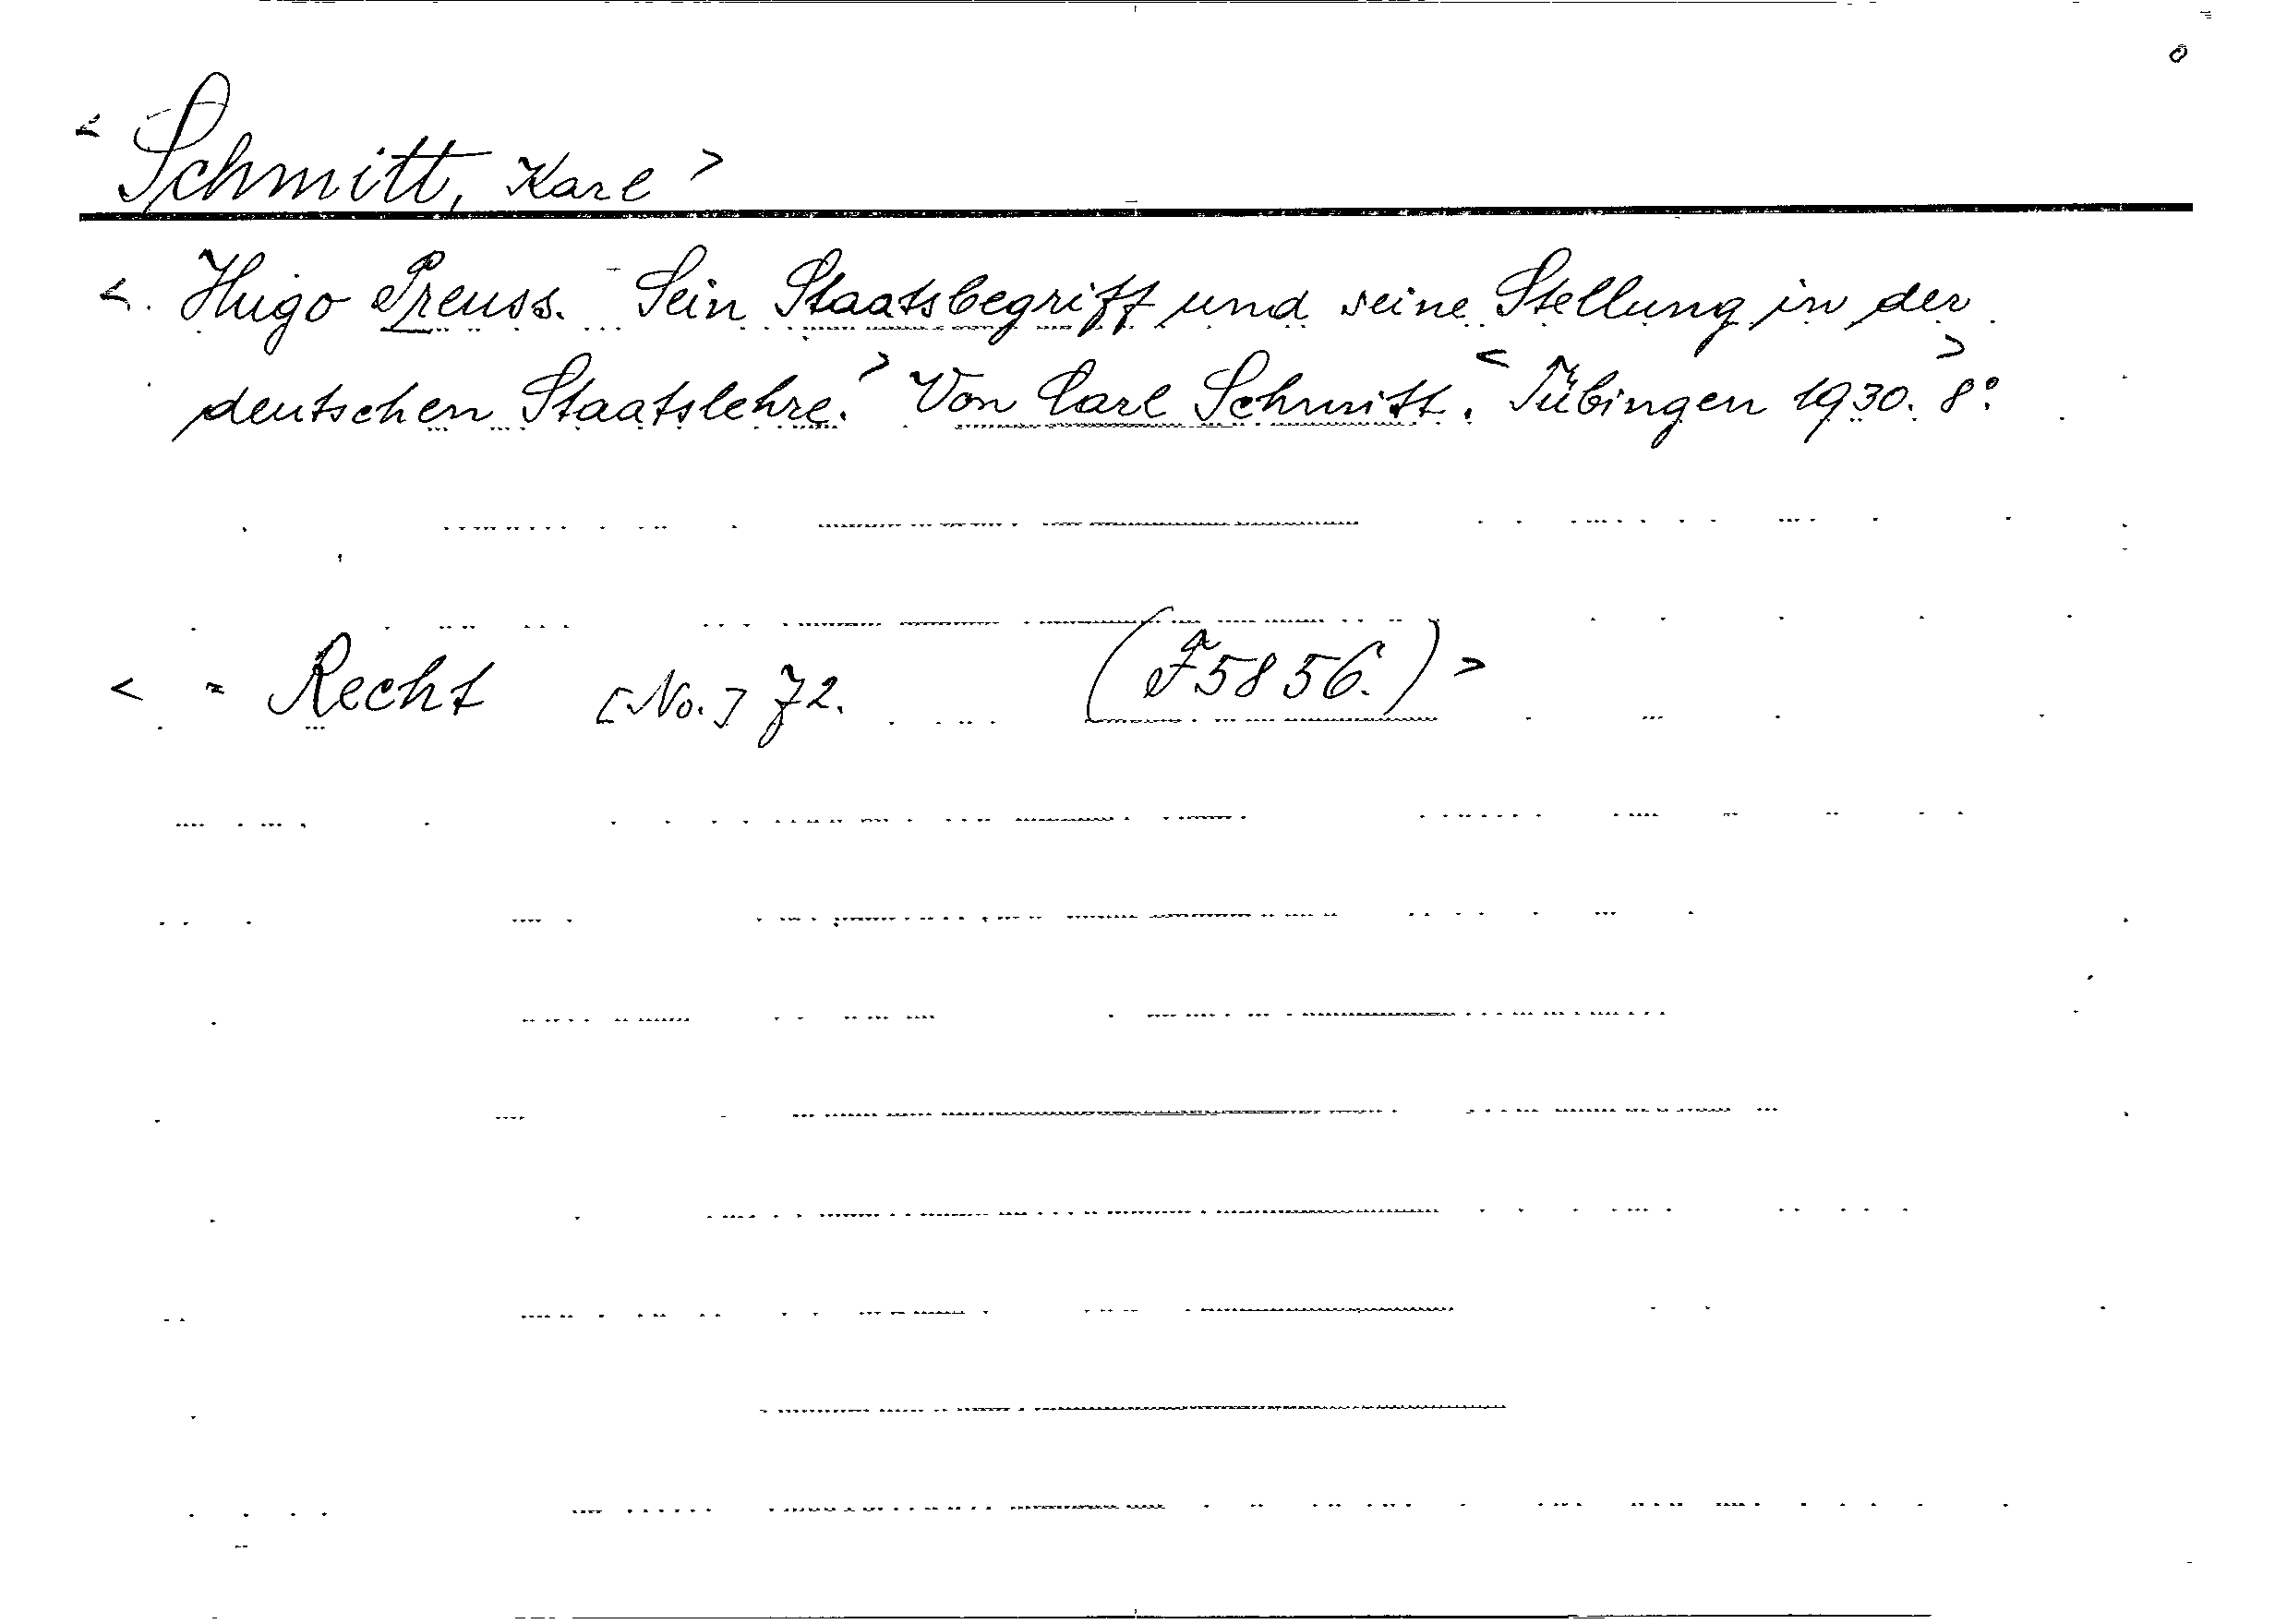 < Schmitt, Karl >
< Hugo Preuss. - Sein Staatsbegriff und seine Stellung in der
deutschen Staatslehre. > Von Carl Schmitt. < Tübingen 1930. 8°. >
< = Recht [No.] 72. (F5856.) >